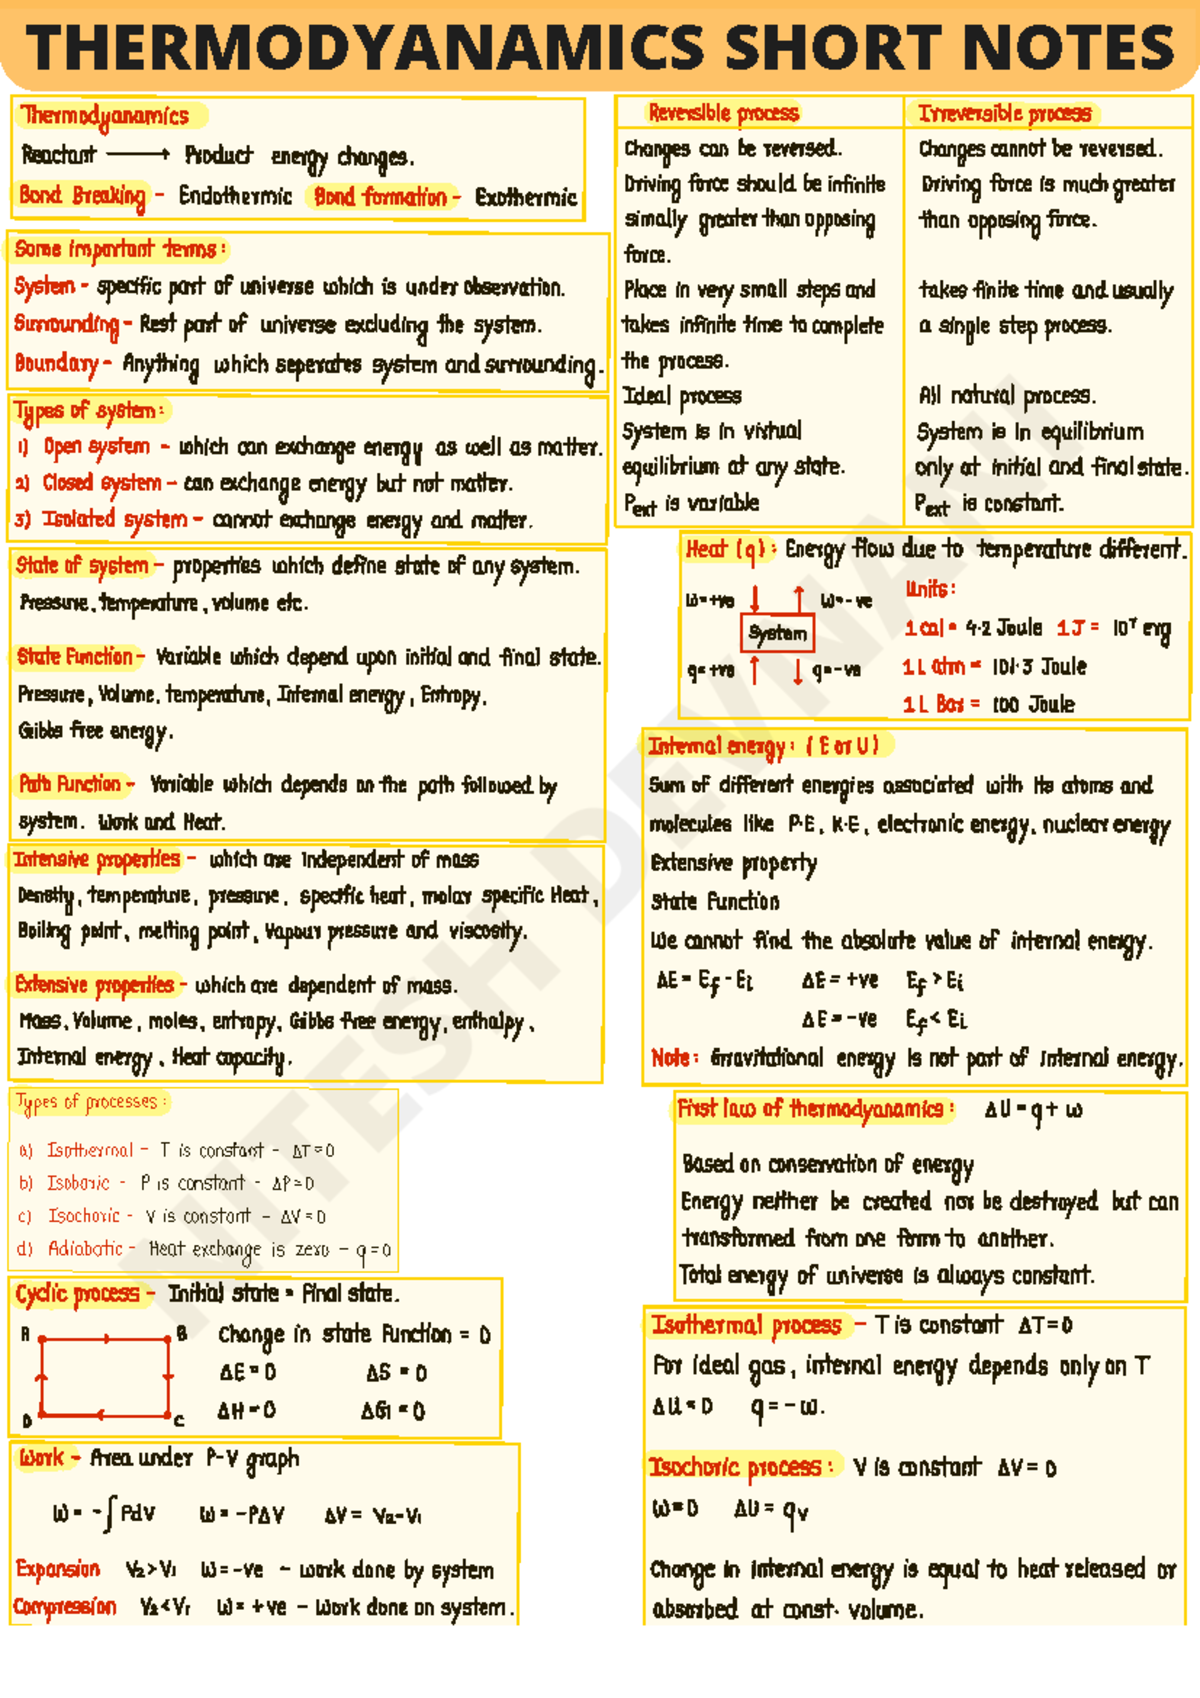 THERMODYANAMICS SHORT NOTES
Thermodyanamics
Reactant ⟶ Product energy changes.
Bond Breaking - Endothermic Bond formation - Exothermic
Some important terms:
System - specific part of universe which is under observation.
Surrounding - Rest part of universe excluding the system.
Boundary - Anything which seperates system and surrounding.
Types of system:
1) Open system - which can exchange energy as well as matter.
2) Closed system - can exchange energy but not matter.
3) Isolated system - cannot exchange energy and matter.
State of system - properties which define state of any system.
Pressure, temperature, volume etc.
State Function - Variable which depend upon initial and final state.
Pressure, Volume, temperature, Internal energy, Entropy,
Gibbs free energy.
Path Function - Variable which depends on the path followed by
system. Work and Heat.
Intensive properties - which are independent of mass
Density, temperature, pressure, specific heat, molar specific Heat,
Boiling point, melting point, Vapour pressure and viscosity.
Extensive properties - which are dependent of mass.
Mass, Volume, moles, entropy, Gibbs free energy, enthalpy,
Internal energy, Heat capacity.
Types of processes:
a) Isothermal - T is constant - ΔT=0
b) Isobaric - P is constant - ΔP=0
c) Isochoric - V is constant - ΔV=0
d) Adiabatic - Heat exchange is zero - q=0
Cyclic process - Initial state = Final state.
A B Change in state Function = 0
ΔE = 0 ΔS = 0
D C ΔH = 0 ΔG = 0
Work - Area under P-V graph
W = -∫PdV W = -PΔV ΔV = V2-V1
Expansion V2>V1 W=-ve - work done by system
Compression V2<V1 W=+ve - Work done on system.
Reversible process Irreversible process
Changes can be reversed. Changes cannot be reversed.
Driving force should be infinite Driving force is much greater
simally greater than opposing than opposing force.
force.
Place in very small steps and takes finite time and usually
takes infinite time to complete a single step process.
the process.
Ideal process All natural process.
System is in virtual System is in equilibrium
equilibrium at any state. only at initial and final state.
Pext is variable Pext is constant.
Heat (q): Energy flow due to temperature different.
Units:
W=+ve W=-ve
System
1 cal = 4.2 Joule 1 J = 10⁷ erg
q=+ve q=-ve 1 L atm = 101.3 Joule
1 L Bar = 100 Joule
Internal energy: (E or U)
Sum of different energies associated with its atoms and
molecules like P.E, K.E, electronic energy, nuclear energy
Extensive property
State Function
We cannot find the absolute value of internal energy.
ΔE = Ef - Ei ΔE = +ve Ef > Ei
ΔE = -ve Ef < Ei
Note: Gravitational energy is not part of Internal energy.
First law of thermodyanamics: ΔU = q + w
Based on conservation of energy
Energy neither be created nor be destroyed but can
transformed from one form to another.
Total energy of universe is always constant.
Isothermal process - T is constant ΔT=0
For ideal gas, internal energy depends only on T
ΔU = 0 q = -w.
Isochoric process: V is constant ΔV = 0
W=0 ΔU = qv
Change in internal energy is equal to heat released or
absorbed at const. volume.
NITESH DEVNANI